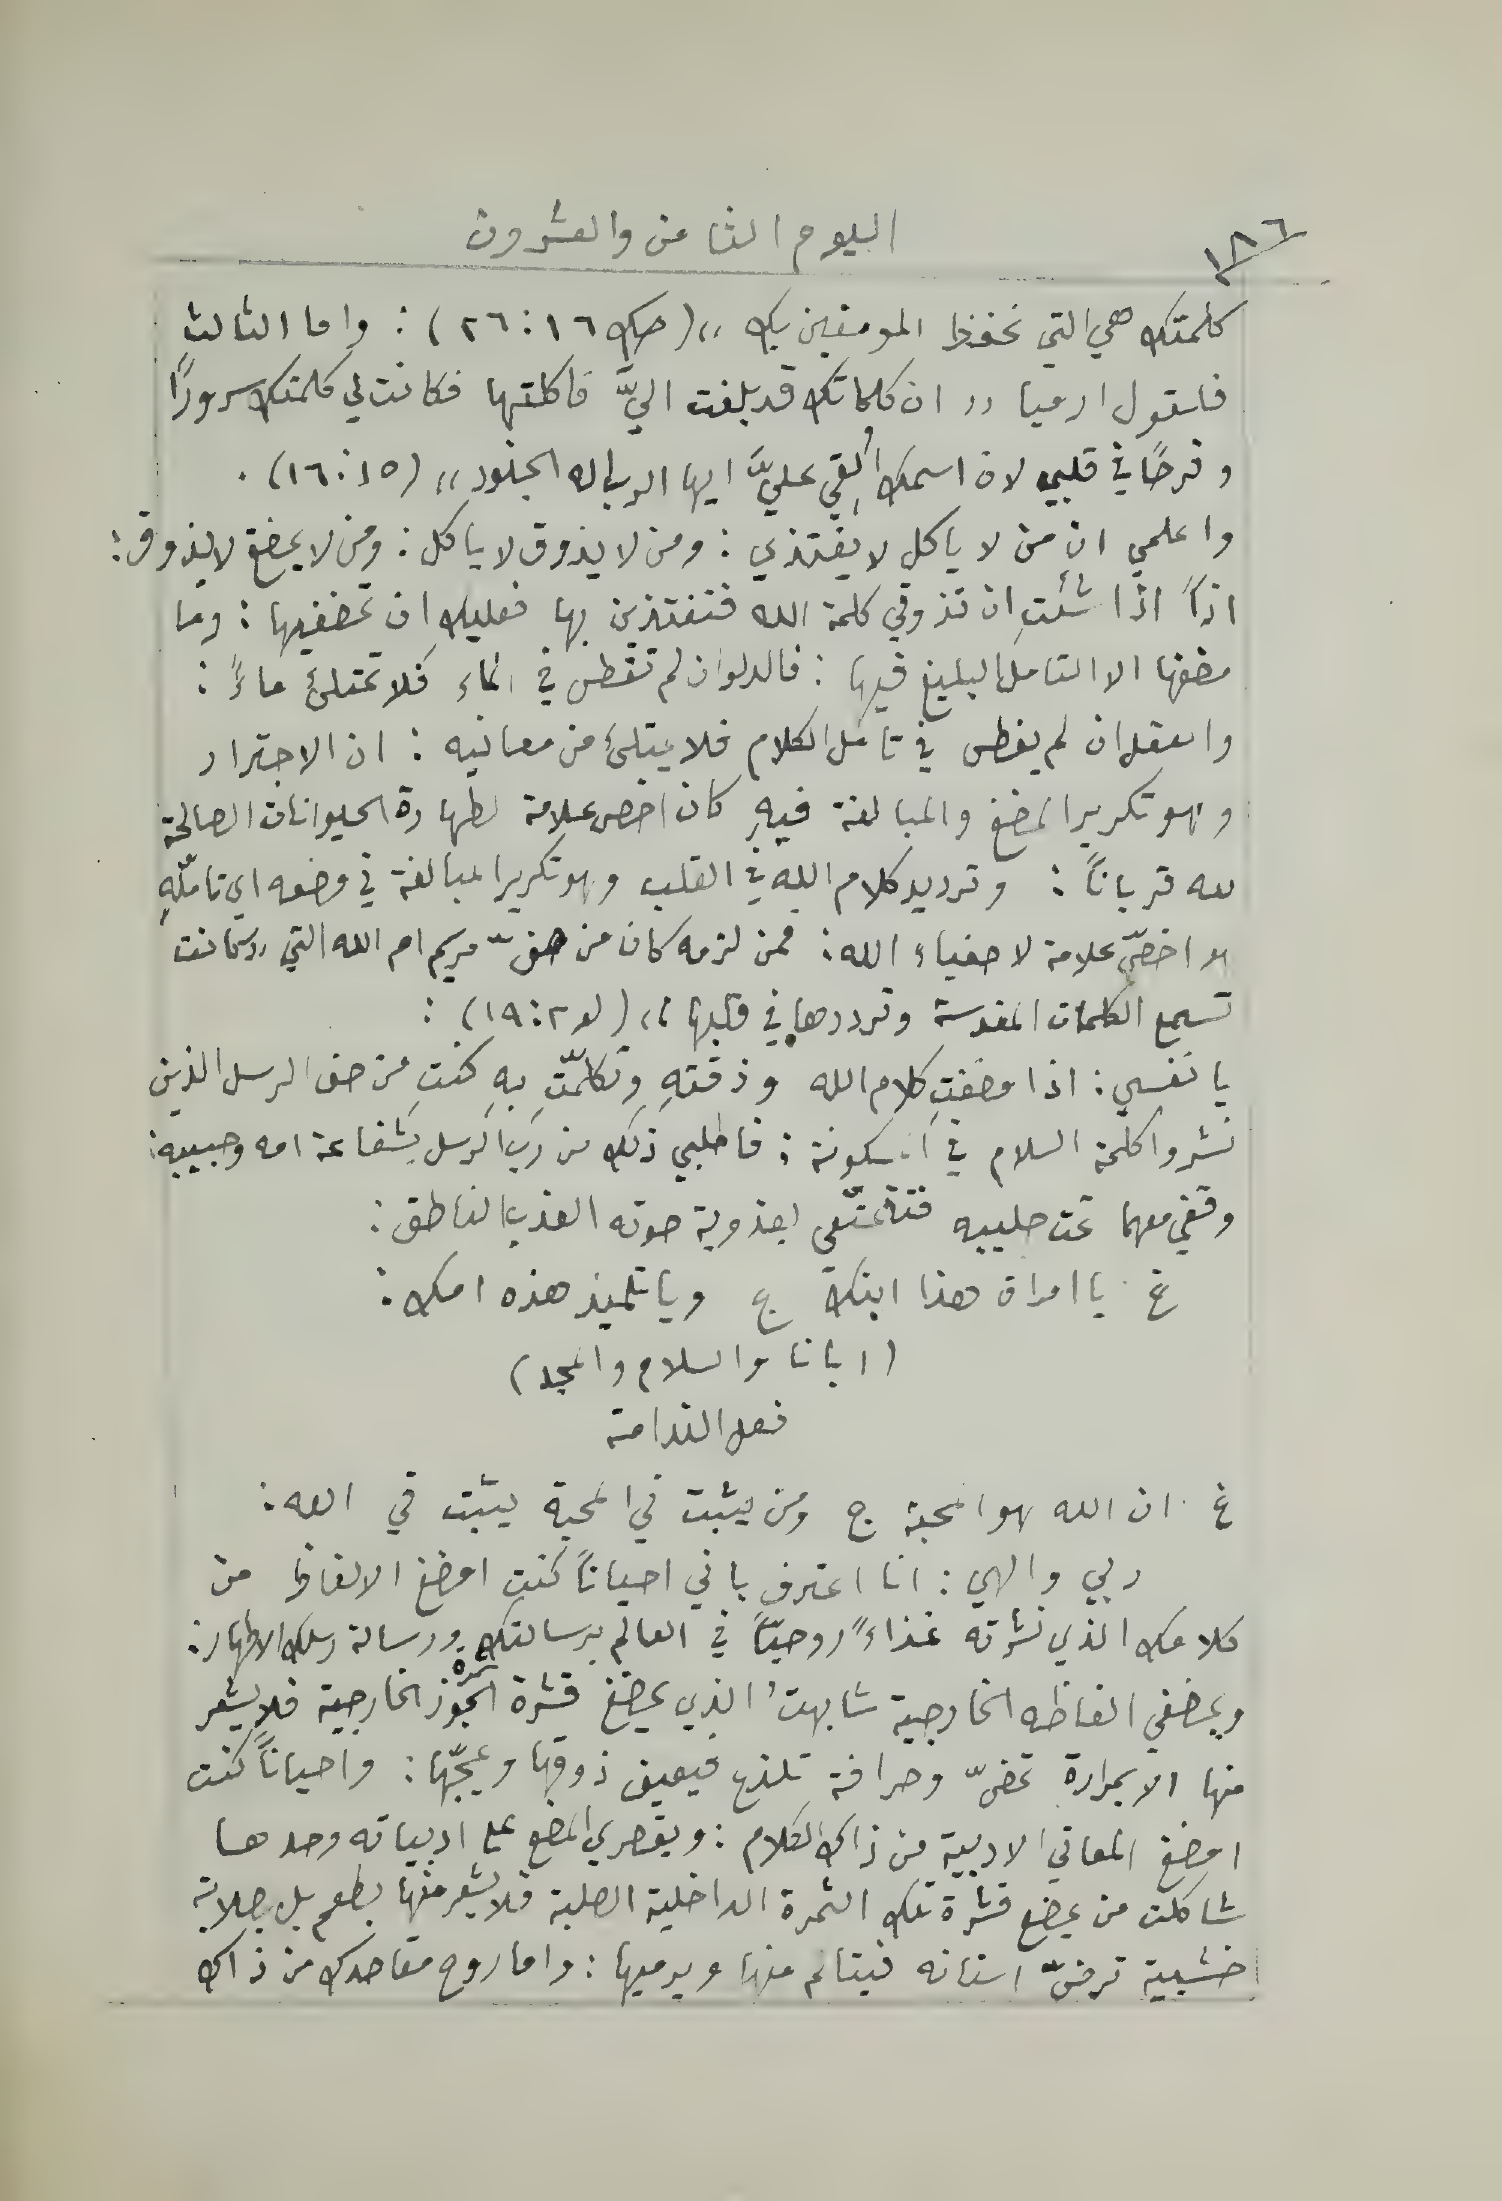 ١٨٦
اليوم الثامن والعشرون
كلمتك هي التي تحفظ المومنين بك ,, (حك ١٦ : ٢٦) : واما الثالث
فلقول ارميا ,, ان كلماتك قد بلغت اليَّ فاكلتها فكانت لي كلمتك سرورًا
وفرحًا في قلبي لان اسمك أُلقي عليَّ ايها الرب اله الجنود ,, (١٥ : ١٦) .
واعلمي ان من لا ياكل لا يغتذي : ومن لا يذوق لا ياكل : ومن لا يمضغ لا يذوق :
اذًا اذا شئتِ ان تذوقي كلمة الله فتغتذين بها فعليك ان تمضغيها : وما
مضغها الا التامل البليغ فيها : فالدلو ان لم تغطس في الماء فلا تمتلئ ماءً :
والعقل ان لم يغطس في تامل الكلام فلا يمتلئ من معانيه : ان الاجترار
وهو تكرير المضغ والمبالغة فيهِ كان اخص علامة لطهارة الحيوانات الصالحة
لله قربانًا : وترديد كلام الله في القلب وهو تكرير المبالغة في مضغه اي تاملّهِ
هو اخصّ علامة لاصفياء الله : فمن لزمه كان من صفّ مريم ام الله التي ,, كانت
تسمع الكلمات المقدسة وترددها في قلبها ,, (لو ٢ : ١٩) :
يا نفسي : اذا مضغتِ كلام الله وذقتهِ وتكلمّتِ به كنتِ من صف الرسل الذين
نشروا كلمة السلام في المسكونة : فاطلبي ذلك من رب الرسل بشفاعة امه وحبيبه :
وقفي معهما تحت صليبه فتتمتّعي بعذوبة صوته العذب الناطق :
غ يا امراة هذا ابنك ج ويا تلميذ هذه امك :
(ابانا والسلام والمجد)
فعل الندامة
غ ان الله هو المحبة ج ومن يثبت في المحبة يثبت في الله :
ربي والهي : انا اعترف باني احيانًا كنت امضغ الالفاظ من
كلامك الذي نشرته غذاءً روحيًّا في العالم برسالتك ورسالة رسلك الاطهار :
وبمضغي الفاظه الخارجية شابهتُ الذي يمضغ قشرة الجوز الخارجية فلا يشعر
منها الا بمرارة تمضّ وحرافة تلذع فيعيف ذوقها ويمجّها : واحيانًا كنت
امضغ المعاني الادبية من ذاك الكلام : وبقصري المضغ على ادبياته وحدها
شاكلت من يمضغ قشرة تلك الثمرة الداخلية الصلبة فلا يشعر منها بطعم بل بصلابة
خشبية ترضّ اسنانه فيتالم منها ويرميها : واما روح مقاصدك من ذاك